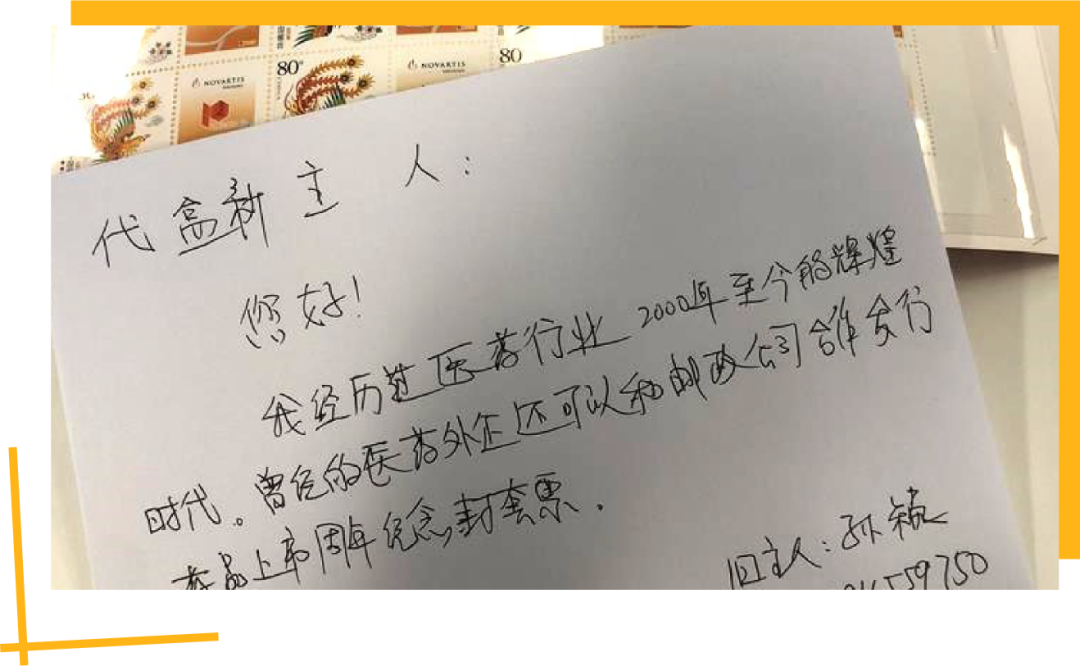 80
NOVARTIS
80
NOVARTIS
80
代盒新主人:
您好!
我经历过医药行业2000年至今的辉煌
时代。曾经的医药外企还可以和邮政公司合作发行
药品上市周年纪念封套票.
旧主人:孙
59750